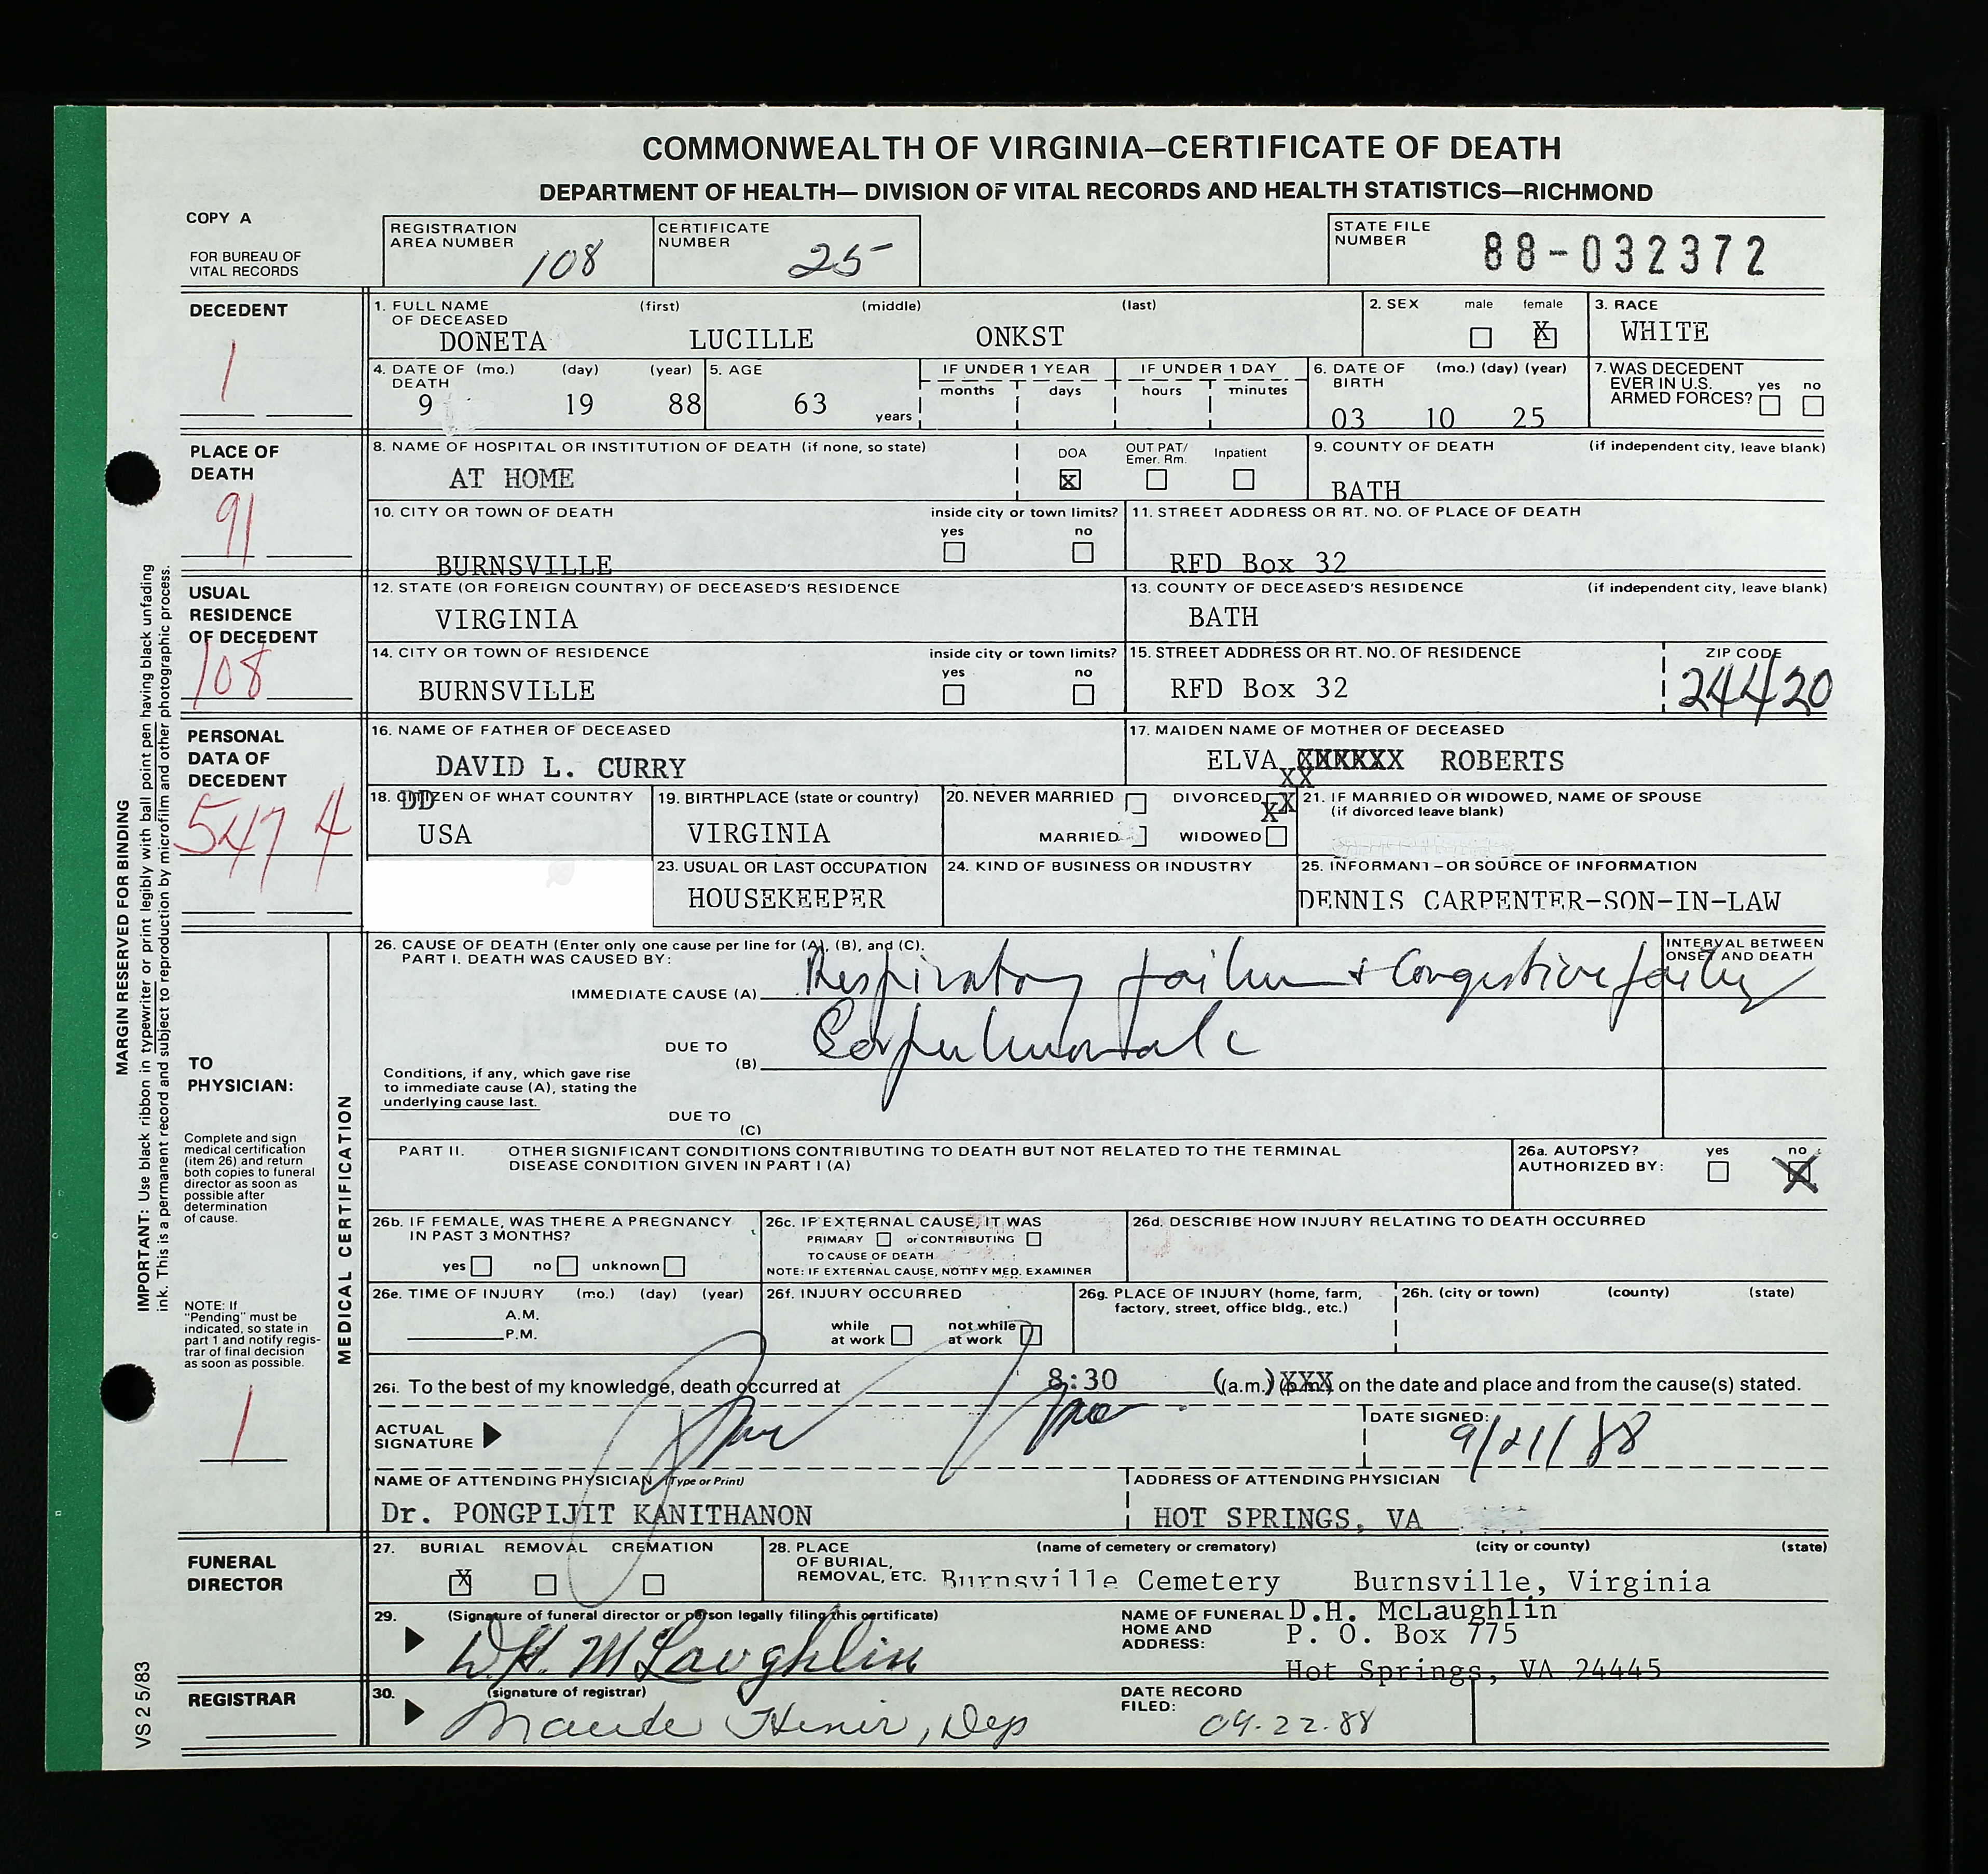 COMMONWEALTH OF VIRGINIA—CERTIFICATE OF DEATH
DEPARTMENT OF HEALTH— DIVISION OF VITAL RECORDS AND HEALTH STATISTICS—RICHMOND
COPY A
FOR BUREAU OF
VITAL RECORDS
REGISTRATION
AREA NUMBER 108
CERTIFICATE
NUMBER 25
STATE FILE
NUMBER 88-032372
DECEDENT
1
1. FULL NAME (first) (middle) (last)
OF DECEASED
DONETA LUCILLE ONKST
2. SEX male female
X
3. RACE
WHITE
4. DATE OF (mo.) (day) (year)
DEATH
9 19 88
5. AGE
63 years
IF UNDER 1 YEAR
months days
IF UNDER 1 DAY
hours minutes
6. DATE OF (mo.) (day) (year)
BIRTH
03 10 25
7. WAS DECEDENT
EVER IN U.S. yes no
ARMED FORCES?
PLACE OF
DEATH
91
8. NAME OF HOSPITAL OR INSTITUTION OF DEATH (if none, so state)
AT HOME
DOA OUT PAT/ Inpatient
Emer. Rm.
X
9. COUNTY OF DEATH (if independent city, leave blank)
BATH
10. CITY OR TOWN OF DEATH inside city or town limits?
yes no
BURNSVILLE
11. STREET ADDRESS OR RT. NO. OF PLACE OF DEATH
RFD Box 32
USUAL
RESIDENCE
OF DECEDENT
108
12. STATE (OR FOREIGN COUNTRY) OF DECEASED'S RESIDENCE
VIRGINIA
13. COUNTY OF DECEASED'S RESIDENCE (if independent city, leave blank)
BATH
14. CITY OR TOWN OF RESIDENCE inside city or town limits?
yes no
BURNSVILLE
15. STREET ADDRESS OR RT. NO. OF RESIDENCE ZIP CODE
RFD Box 32 24420
PERSONAL
DATA OF
DECEDENT
547 4
16. NAME OF FATHER OF DECEASED
DAVID L. CURRY
17. MAIDEN NAME OF MOTHER OF DECEASED
ELVA XXXXXX ROBERTS
18. CITIZEN OF WHAT COUNTRY
USA
19. BIRTHPLACE (state or country)
VIRGINIA
20. NEVER MARRIED DIVORCED XX
MARRIED WIDOWED
21. IF MARRIED OR WIDOWED, NAME OF SPOUSE
(if divorced leave blank)
23. USUAL OR LAST OCCUPATION
HOUSEKEEPER
24. KIND OF BUSINESS OR INDUSTRY
25. INFORMANT—OR SOURCE OF INFORMATION
DENNIS CARPENTER-SON-IN-LAW
TO
PHYSICIAN:
Complete and sign
medical certification
(item 26) and return
both copies to funeral
director as soon as
possible after
determination
of cause.
NOTE: If
"Pending" must be
indicated, so state in
part 1 and notify regis-
trar of final decision
as soon as possible.
1
MEDICAL CERTIFICATION
26. CAUSE OF DEATH (Enter only one cause per line for (A), (B), and (C).
PART I. DEATH WAS CAUSED BY:
INTERVAL BETWEEN
ONSET AND DEATH
IMMEDIATE CAUSE (A) Respiratory failure + Congestive failure
DUE TO
(B) Cor pulmonale
Conditions, if any, which gave rise
to immediate cause (A), stating the
underlying cause last.
DUE TO
(C)
PART II. OTHER SIGNIFICANT CONDITIONS CONTRIBUTING TO DEATH BUT NOT RELATED TO THE TERMINAL
DISEASE CONDITION GIVEN IN PART I (A)
26a. AUTOPSY? yes no
AUTHORIZED BY: X
26b. IF FEMALE, WAS THERE A PREGNANCY
IN PAST 3 MONTHS?
yes no unknown
26c. IF EXTERNAL CAUSE, IT WAS
PRIMARY or CONTRIBUTING
TO CAUSE OF DEATH
NOTE: IF EXTERNAL CAUSE, NOTIFY MED. EXAMINER
26d. DESCRIBE HOW INJURY RELATING TO DEATH OCCURRED
26e. TIME OF INJURY (mo.) (day) (year)
A.M.
P.M.
26f. INJURY OCCURRED
while at work not while at work
26g. PLACE OF INJURY (home, farm,
factory, street, office bldg., etc.)
26h. (city or town) (county) (state)
26i. To the best of my knowledge, death occurred at 8:30 (a.m.) XXX on the date and place and from the cause(s) stated.
ACTUAL
SIGNATURE
DATE SIGNED: 9/21/88
NAME OF ATTENDING PHYSICIAN (Type or Print)
Dr. PONGPIJIT KANITHANON
ADDRESS OF ATTENDING PHYSICIAN
HOT SPRINGS, VA
FUNERAL
DIRECTOR
27. BURIAL REMOVAL CREMATION
X
28. PLACE (name of cemetery or crematory) (city or county) (state)
OF BURIAL,
REMOVAL, ETC. Burnsville Cemetery Burnsville, Virginia
29. (Signature of funeral director or person legally filing this certificate)
D.H. McLaughlin
NAME OF FUNERAL
HOME AND
ADDRESS:
D.H. McLaughlin
P. O. Box 775
Hot Springs, VA 24445
REGISTRAR
30. (signature of registrar)
Maude Hiner, Dep
DATE RECORD
FILED: 09-22-88
MARGIN RESERVED FOR BINDING
IMPORTANT: Use black ribbon in typewriter or print legibly with ball point pen having black unfading
ink. This is a permanent record and subject to reproduction by microfilm and other photographic process.
VS 2 5/83